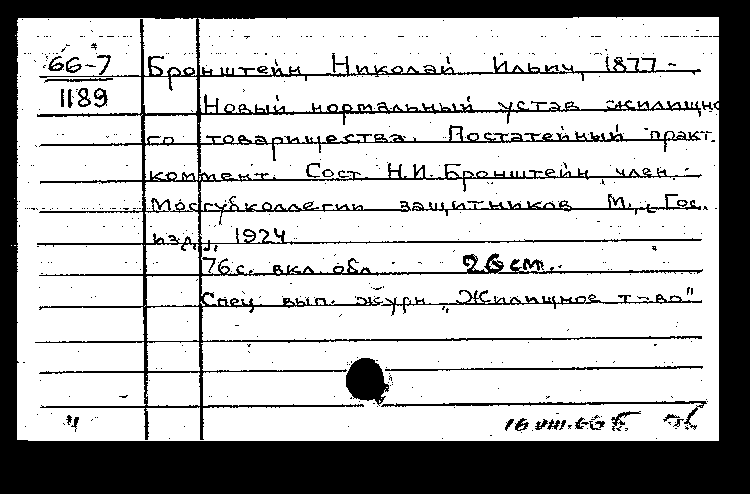 66-7 Бронштейн, Николай Ильич, 1877 -
1189 Новый нормальный устав жилищно
го товарищества. Постатейный практ.
коммент. Сост. Н.И. Бронштейн, член
Мосгубколлегии защитников М., Гос.
изд., 1924
76 с. вкл. обл. 26 см.
Спец. вып. журн. „Жилищное т-во"
ч 16 VIII.66